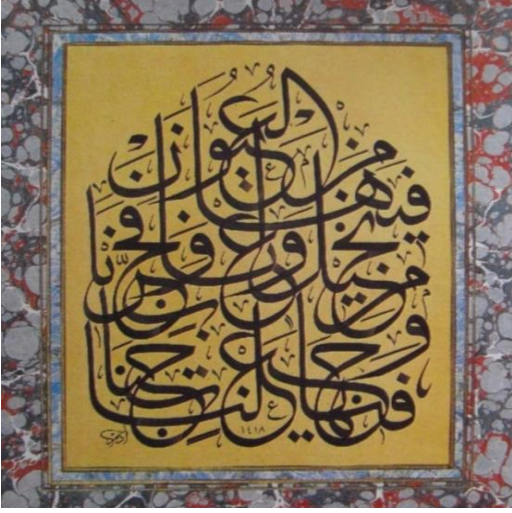 وجعلنا فيها جنات
من نخيل وأعناب وفجرنا
فيها من العيون
١٤١٨